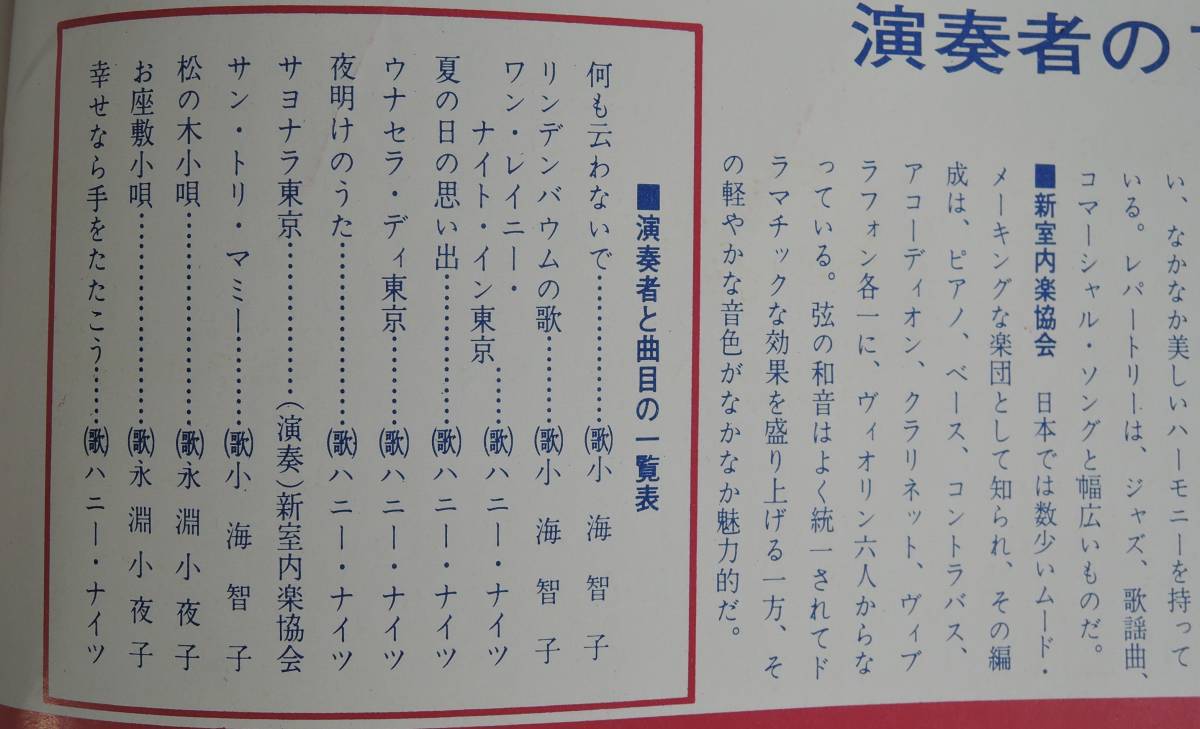 演奏者の
い、なかなか美しいハーモニーを持って
いる。レパートリーは、ジャズ、歌謡曲、
コマーシャル・ソングと幅広いものだ。
■新室内楽協会　日本では数少いムード・
メーキングな楽団として知られ、その編
成は、ピアノ、ベース、コントラバス、
アコーディオン、クラリネット、ヴィブ
ラフォン各一に、ヴィオリン六人からな
っている。弦の和音はよく統一されてド
ラマチックな効果を盛り上げる一方、そ
の軽やかな音色がなかなか魅力的だ。
■演奏者と曲目の一覧表
何も云わないで…………………(歌)小海智子
リンデンバウムの歌…………(歌)小海智子
ワン・レイニー・
ナイト・イン東京……(歌)ハニー・ナイツ
夏の日の思い出………………(歌)ハニー・ナイツ
ウナセラ・ディ東京…………(歌)ハニー・ナイツ
夜明けのうた…………………(歌)ハニー・ナイツ
サヨナラ東京………………(演奏)新室内楽協会
サン・トリ・マミー…………(歌)小海智子
松の木小唄……………………(歌)永淵小夜子
お座敷小唄……………………(歌)永淵小夜子
幸せなら手をたたこう………(歌)ハニー・ナイツ